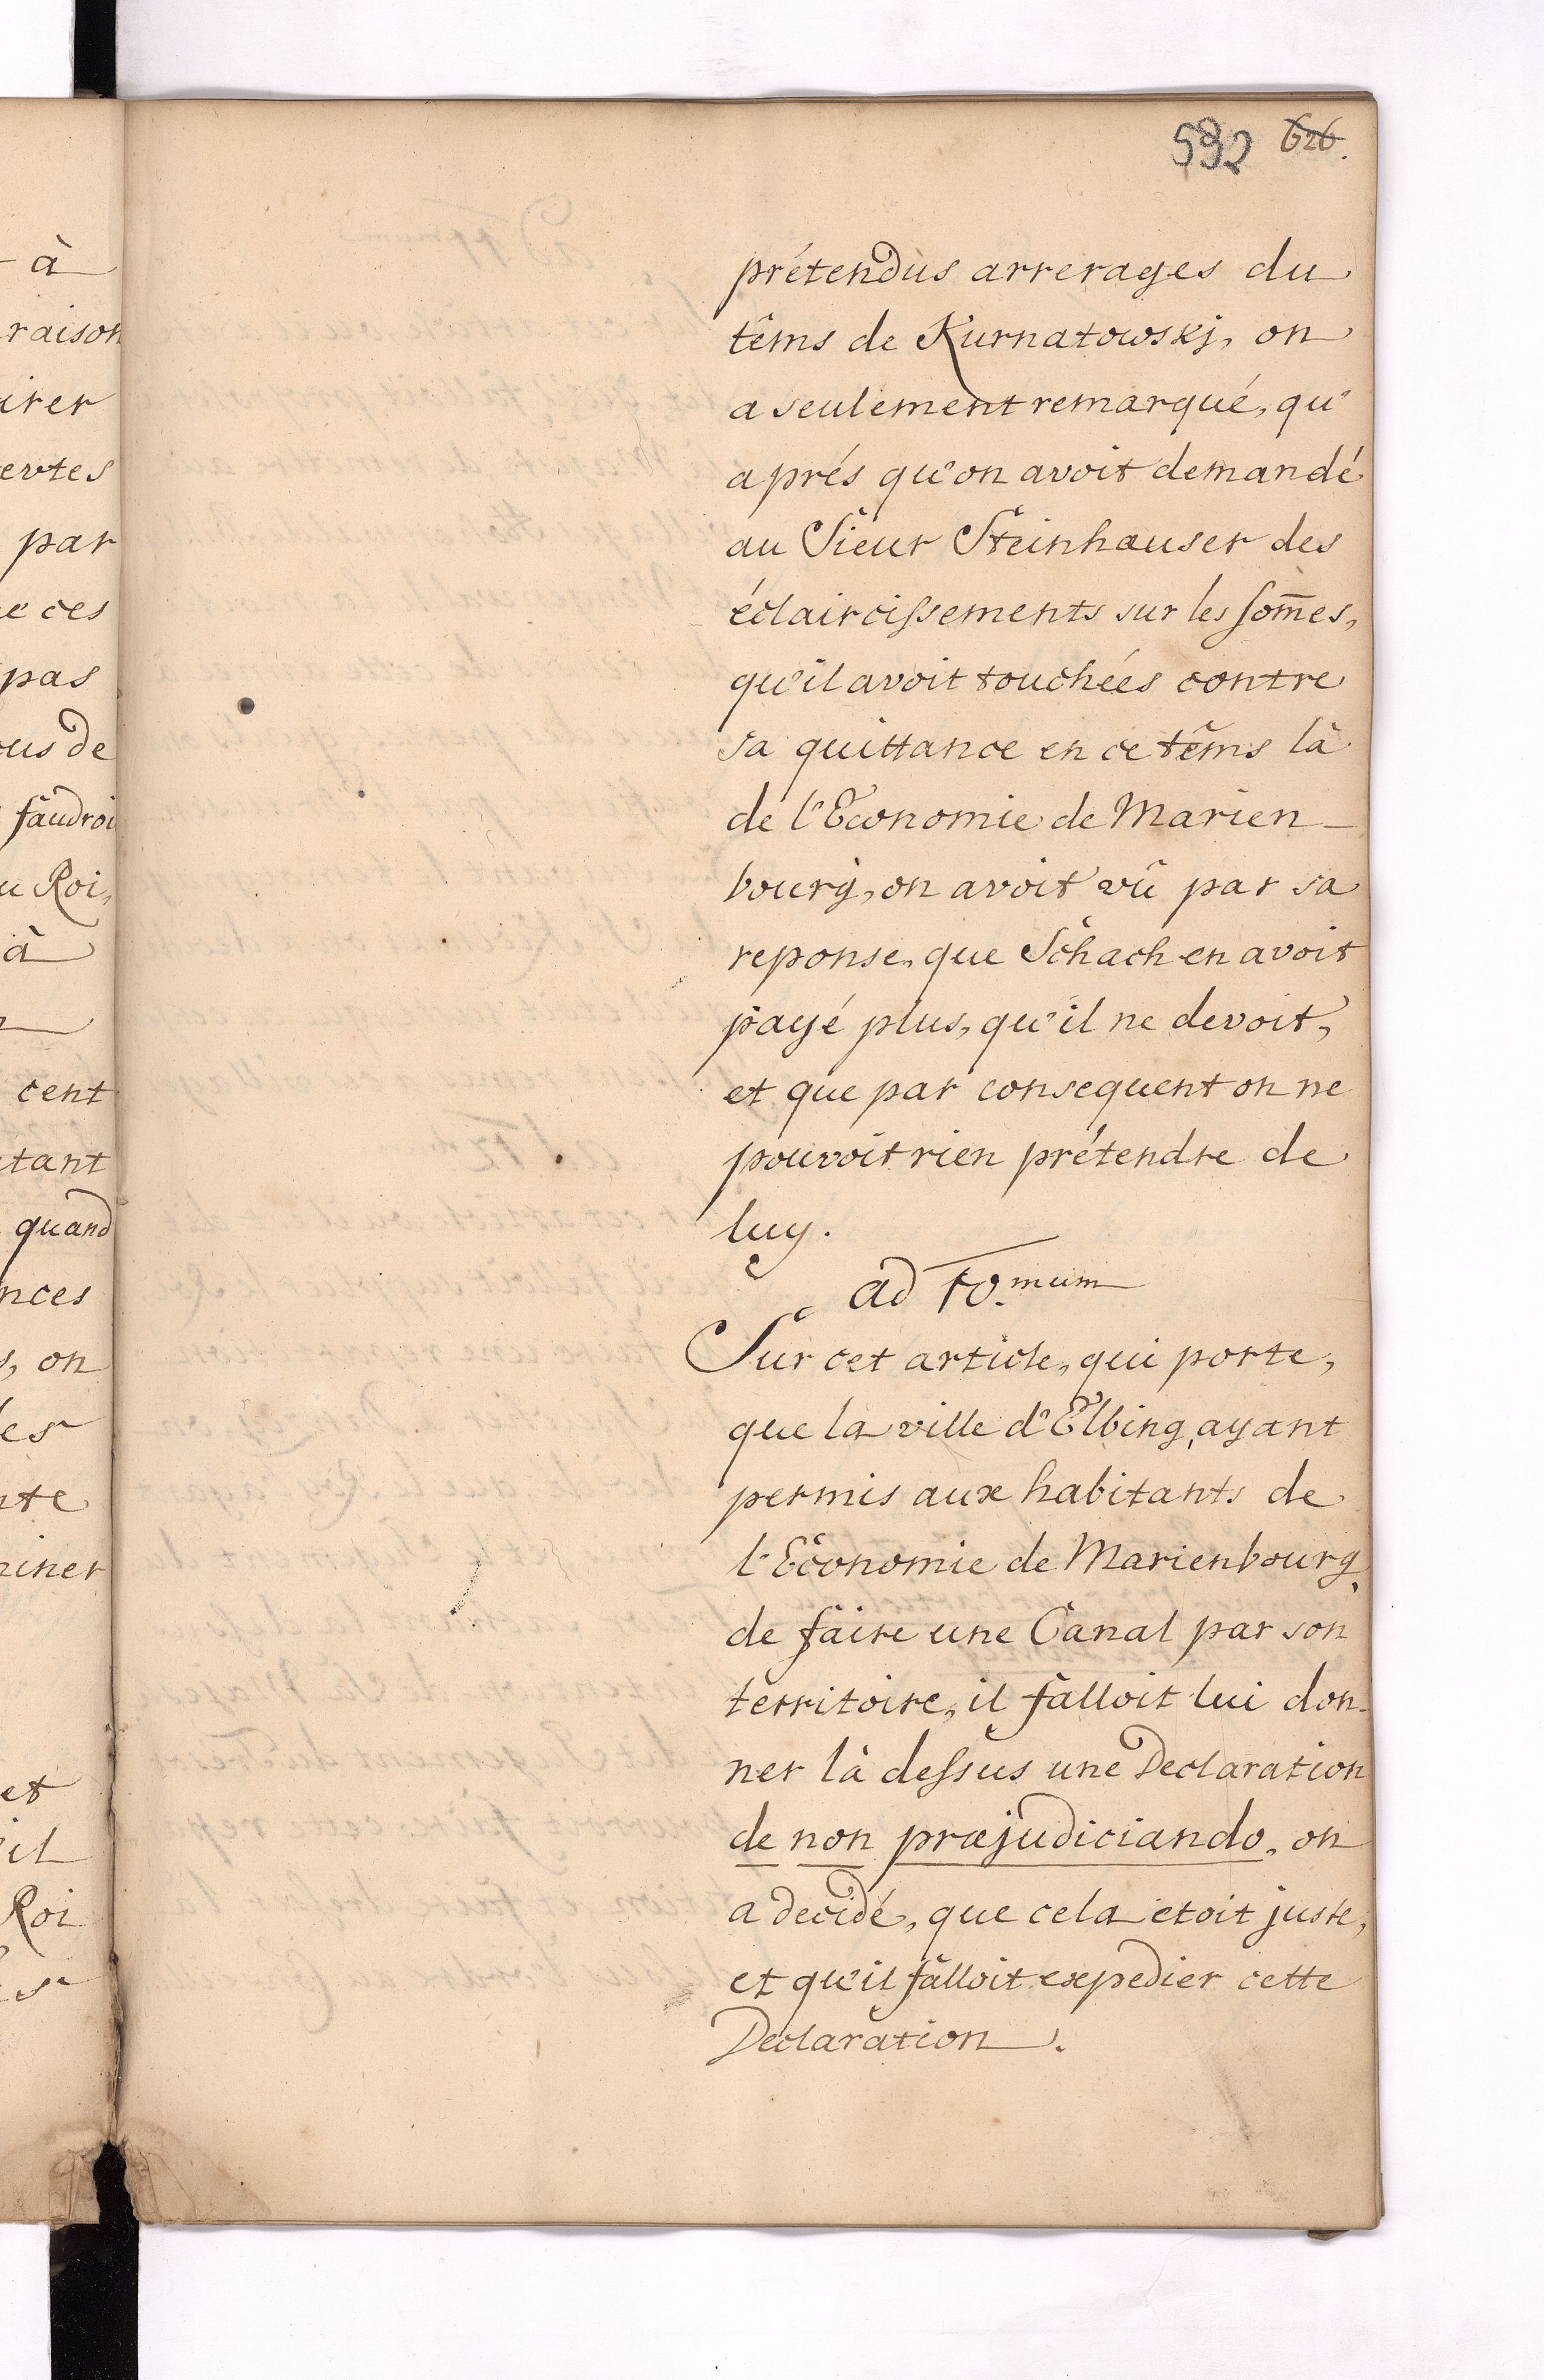 592 626.
prétendus arrerages du
têms de Kurnatowskj, on
a seulement remarqué, qu'
aprés qu'on avoit demandé
au Sieur Steinhauser des
éclaircissements sur les som̄es,
qu'il avoit touchées contre
sa quittance en ce têms là
de l'Economie de Marien-
bourg, on avoit vû par sa
reponse, que Schach en avoit
payé plus, qu'il ne devoit,
et que par consequent on ne
pouvoit rien prétendre de
luy.
ad 10.mum
Sur cet article, qui porte,
que la ville d'Elbing, ayant
permis aux habitants de
l'Economie de Marienbourg
de faire une Canal par son
territoire, il falloit lui don-
ner là dessus une Declaration
de non præjudiciando, on
a decidé, que cela etoit juste,
et qu'il falloit expedier cette
Declaration.
à
raison
irer
par
ces
pas
de
faudroi
Roi,
à
cent
tant
quand
nces
on
et
il
Roi